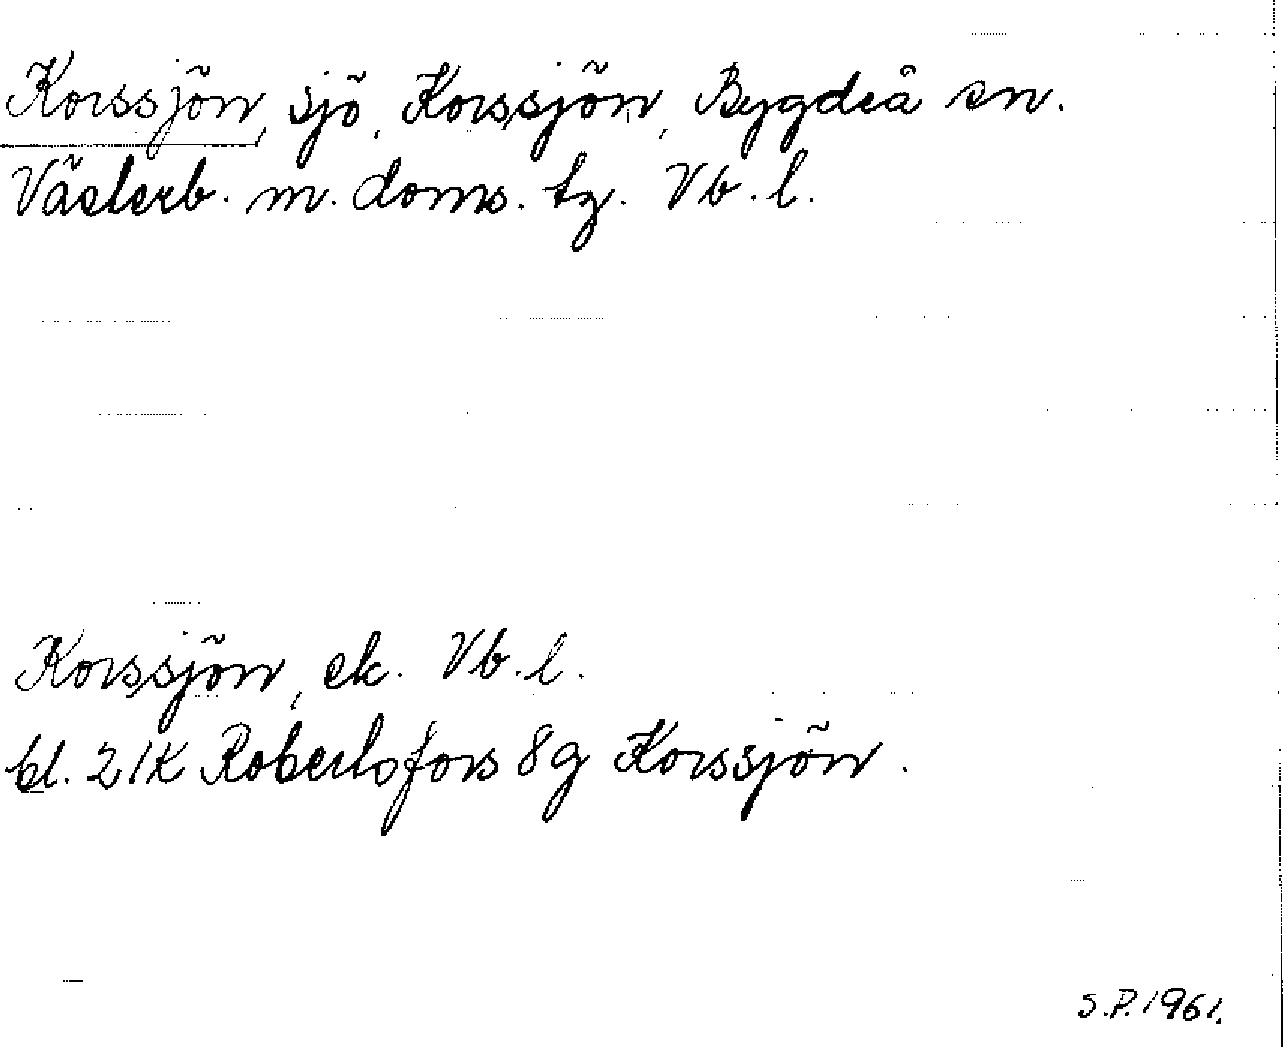 Korssjön, sjö, Korssjön, Bygdeå sn.
Västerb. m. doms. tg. Vb. l.
Korssjön, ek. Vb. l.
bl. 21K Robertsfors 8g Korssjön.
S.P. 1961.